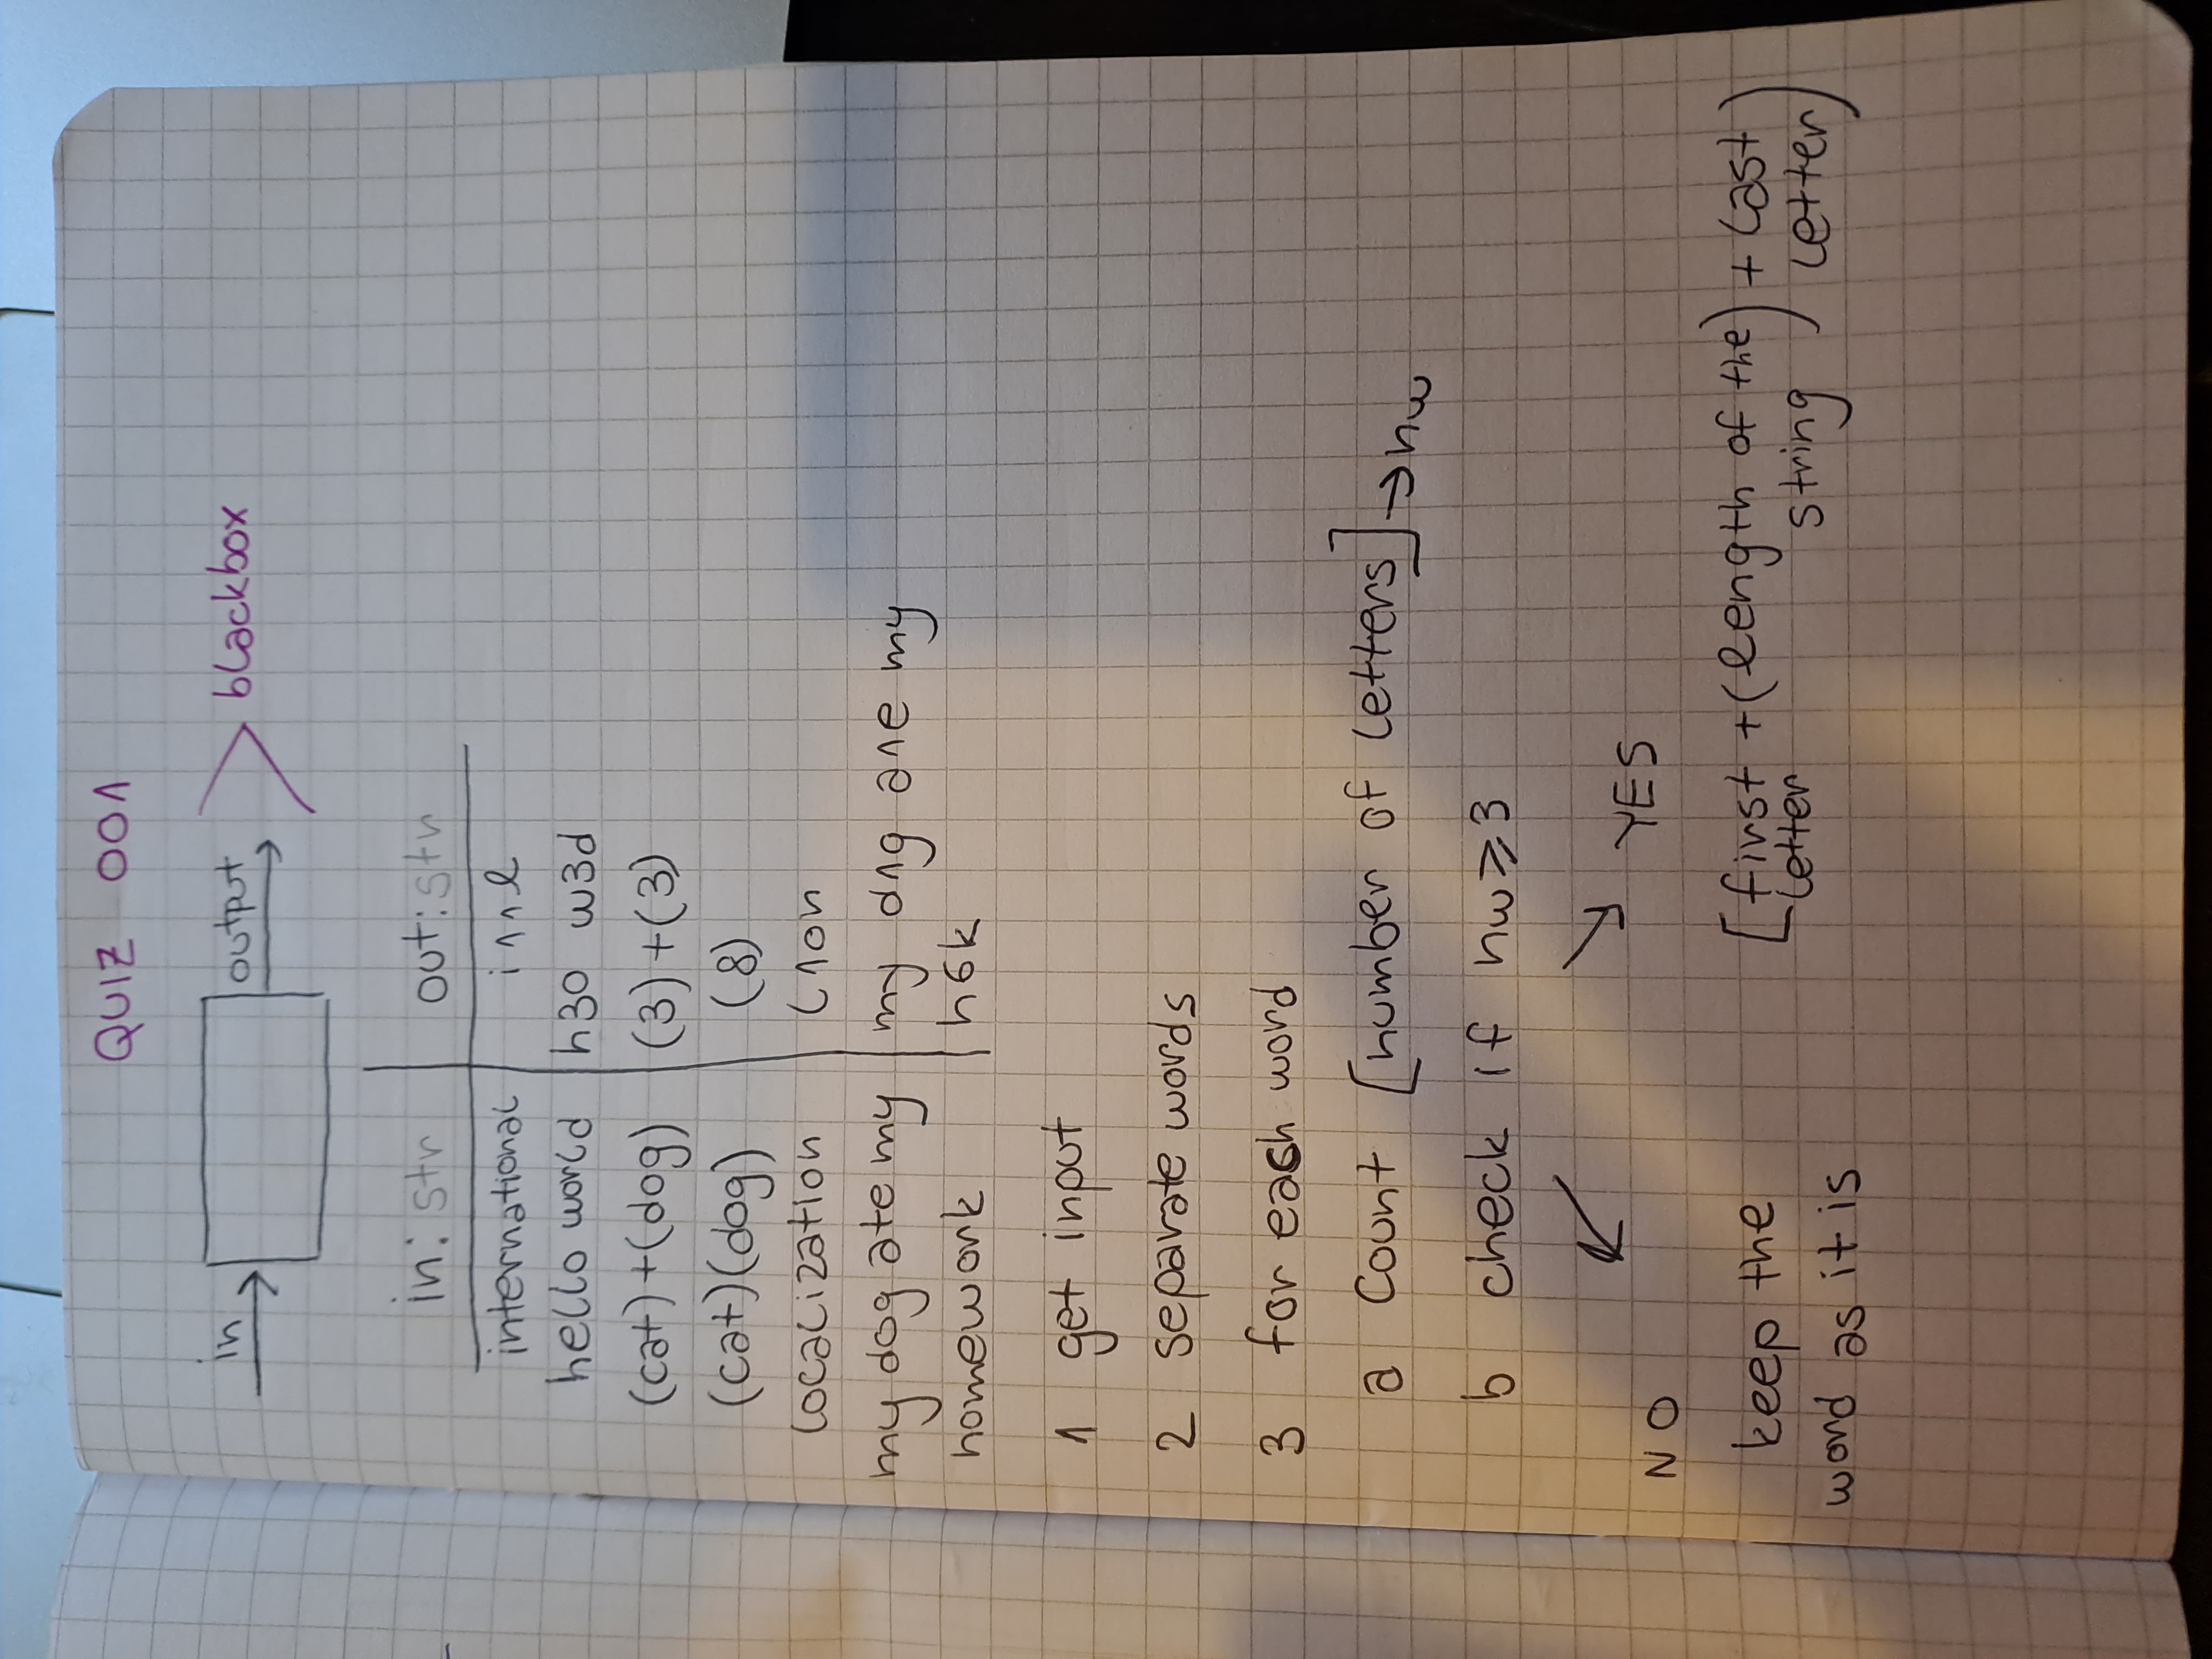 QUIZ 001
in
output
blackbox
in: str out: str
international i11l
hello world h3o w3d
(cat)+(dog) (3)+(3)
(cat)(dog) (8)
localization l10n
my dog ate my my d1g a1e my
homework h6k
1 get input
2 separate words
3 for each word
a Count [number of letters]→nw
b check if nw⩾3
NO
YES
keep the
word as it is
[first + (length of the) + last)
letter string letter